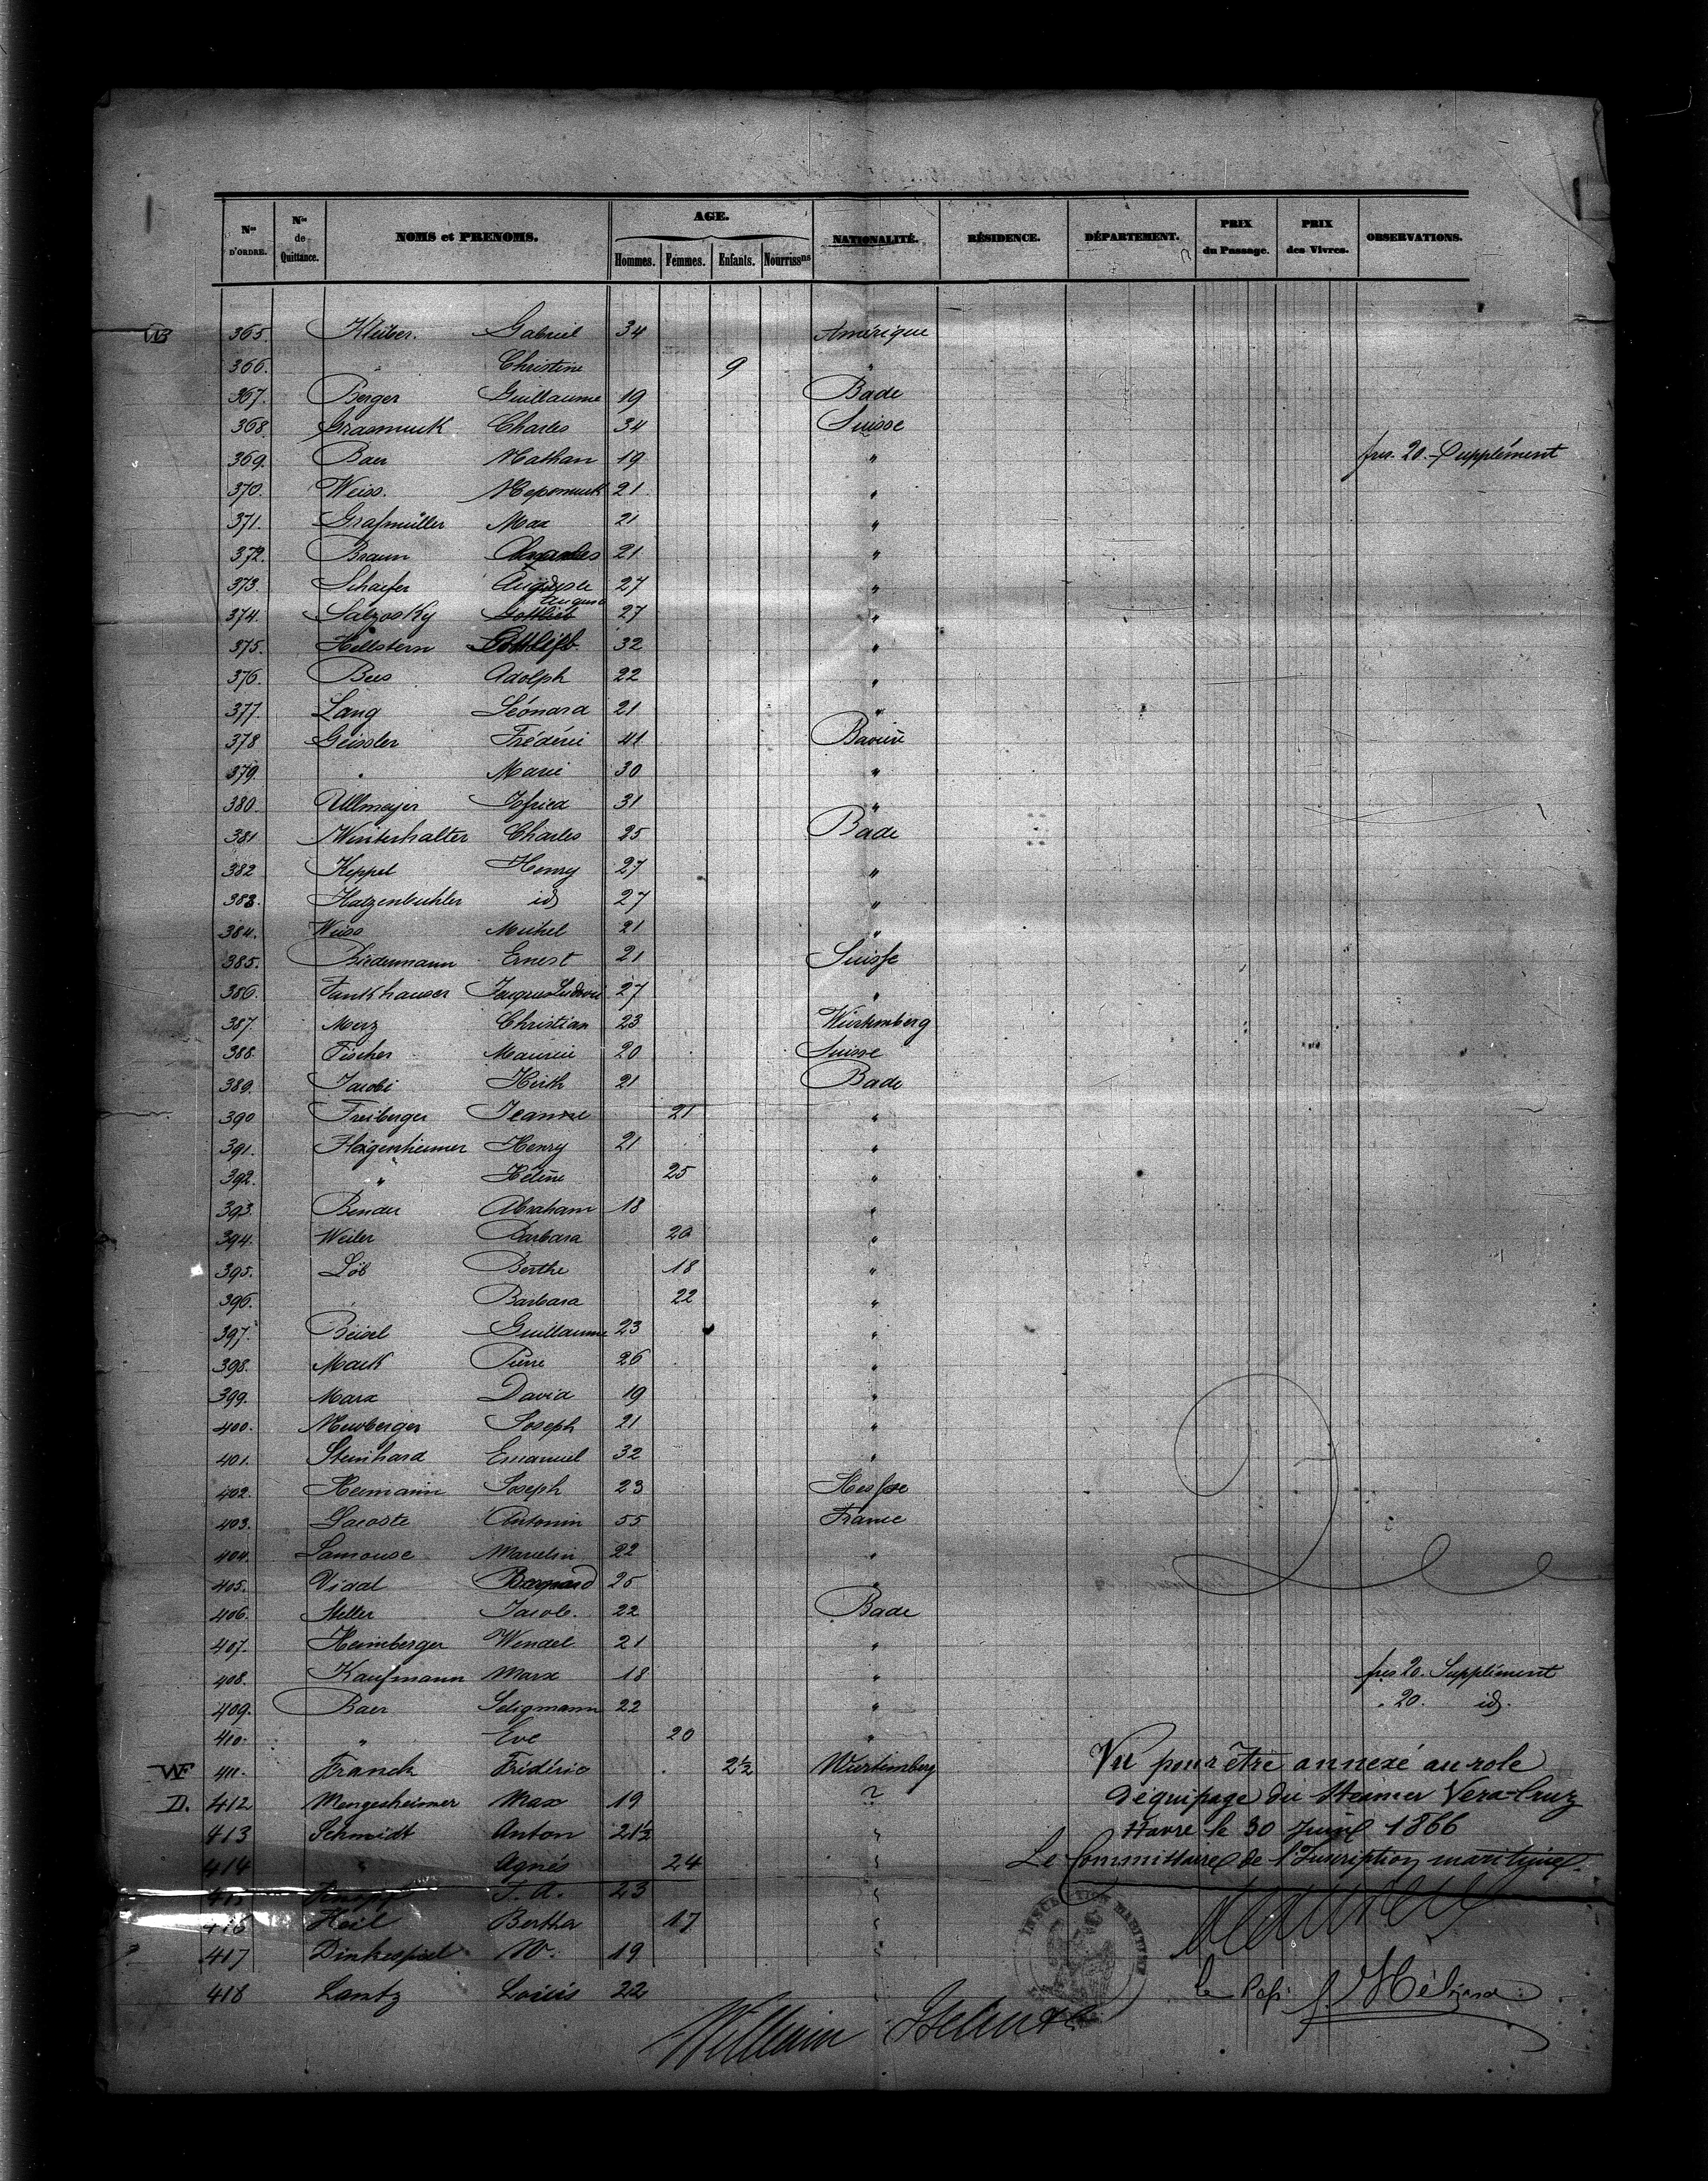 Nos D'ORDRE. Nos de Quittance. NOMS et PRENOMS. AGE. Hommes. Femmes. Enfants. Nourrissns NATIONALITÉ. RÉSIDENCE. DÉPARTEMENT. PRIX du Passage. PRIX des Vivres. OBSERVATIONS.
365. Kleiber. Gabriel 34 Amérique
366. " Christine 9 "
367. Berger Guillaume 19 Bade
368. Grasmuck Charles 34 Suisse
369. Baer Nathan 19 " frs. 20. Supplément
370. Weiss. Nepomuck 21 "
371. Grafmüller Max 21 "
372. Braun 21 "
373. Schaefer Auguste 27 "
374. Salzosky Gottlieb August 27 "
375. Hellstern 32 "
376. Bees Adolph 22 "
377. Lang Léonard 21 "
378 Geissler Frédéric 41 Bavière
379. " Marie 30 "
380. Ullmeyer 31 "
381 Winterhalter Charles 25 Bade
382 Keppel Henry 27 "
383. Hatzenbuhler id 27 "
384. Weiss Michel 21 "
385. Biedermann Ernest 21 Suisse
386. Fankhauser Jaques Ludovic 27 "
387. Merz Christian 23 Wurtemberg
388. Fischer Maurice 20 Suisse
389. Jacobi Hirth 21 Bade
390 Freiberger Jeanne 21 "
391. Flexgenheimer Henry 21 "
392. " Hélène 25 "
393. Bender Abraham 18 "
394. Weiler Barbara 20 "
395. Löb Berthe 18 "
396. " Barbara 22 "
397. Beisel Guillaume 23 "
398. Mack Pierre 26 "
399. Marx David 19 "
400. Neuberger Joseph 21 "
401. Steinhard Emanuel 32 "
402. Hermann Joseph 23 Hesse
403. Lacoste Antonin 55 France
404. Lamouse Marcelin 22 "
405. Vidal 25 "
406. Steller Jacob. 22 Bade
407. Heimberger Wendel 21 "
408. Kaufmann Marx 18 " frs 20. Supplément
409. Baer Seligmann 22 " " 20. id.
410. " Eve 20 "
WF 411. Franck Frédéric 2½ Wurtemberg
D. 412 Mengesheimer Max 19 ?
413 Schmidt Anton 21½ "
414 " Agnés 24 "
415 Knopf J. A. 23 "
416 Heil Bertha 17 "
417 Dinkespiel W. 19 "
418 Lantz Louis 22 "
Vu pour être annexé au role
d'équipage du Steamer Vera-Cruz
Havre le 30 Juin 1866
Le Commissaire de l'Inscription maritime.
INSCRIPTION MARITIME
Le Cap:
William